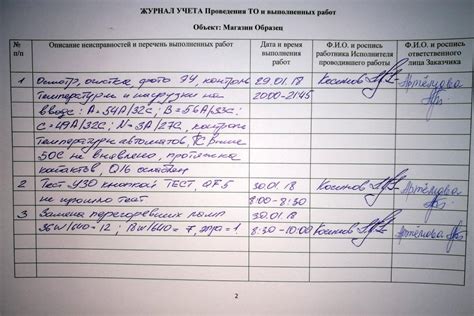 ЖУРНАЛ УЧЕТА Проведения ТО и выполненных работ
Объект: Магазин Образец
№ п/п
Описание неисправности и перечень выполненных работ
Дата и время выполнения работ
Ф.И.О. и роспись работника Исполнителя проводившего работы
Ф.И.О. и роспись ответственного лица Заказчика
1 Осмотр, очистка, фото ЭУ, контроль 29.01.18 Косинов Артёмова
температуры и нагрузки на 20:00-21:45
вводе: A=54A/32C; B=56A/33C;
C=49A/32C; N=3A/27C, контроль
температуры автоматов, t°C выше
50С не выявлено, протяжка
контактов, Q16 ослаблен
2 Тест УЗО кнопкой ТЕСТ, QF5 30.01.18 Косинов Артёмова
не прошло тест 8:00-8:30
3 Замена перегоревших ламп 30.01.18
36W/640=12; 18W/640=7, =1 8:30-10:00 Косинов Артёмова
2